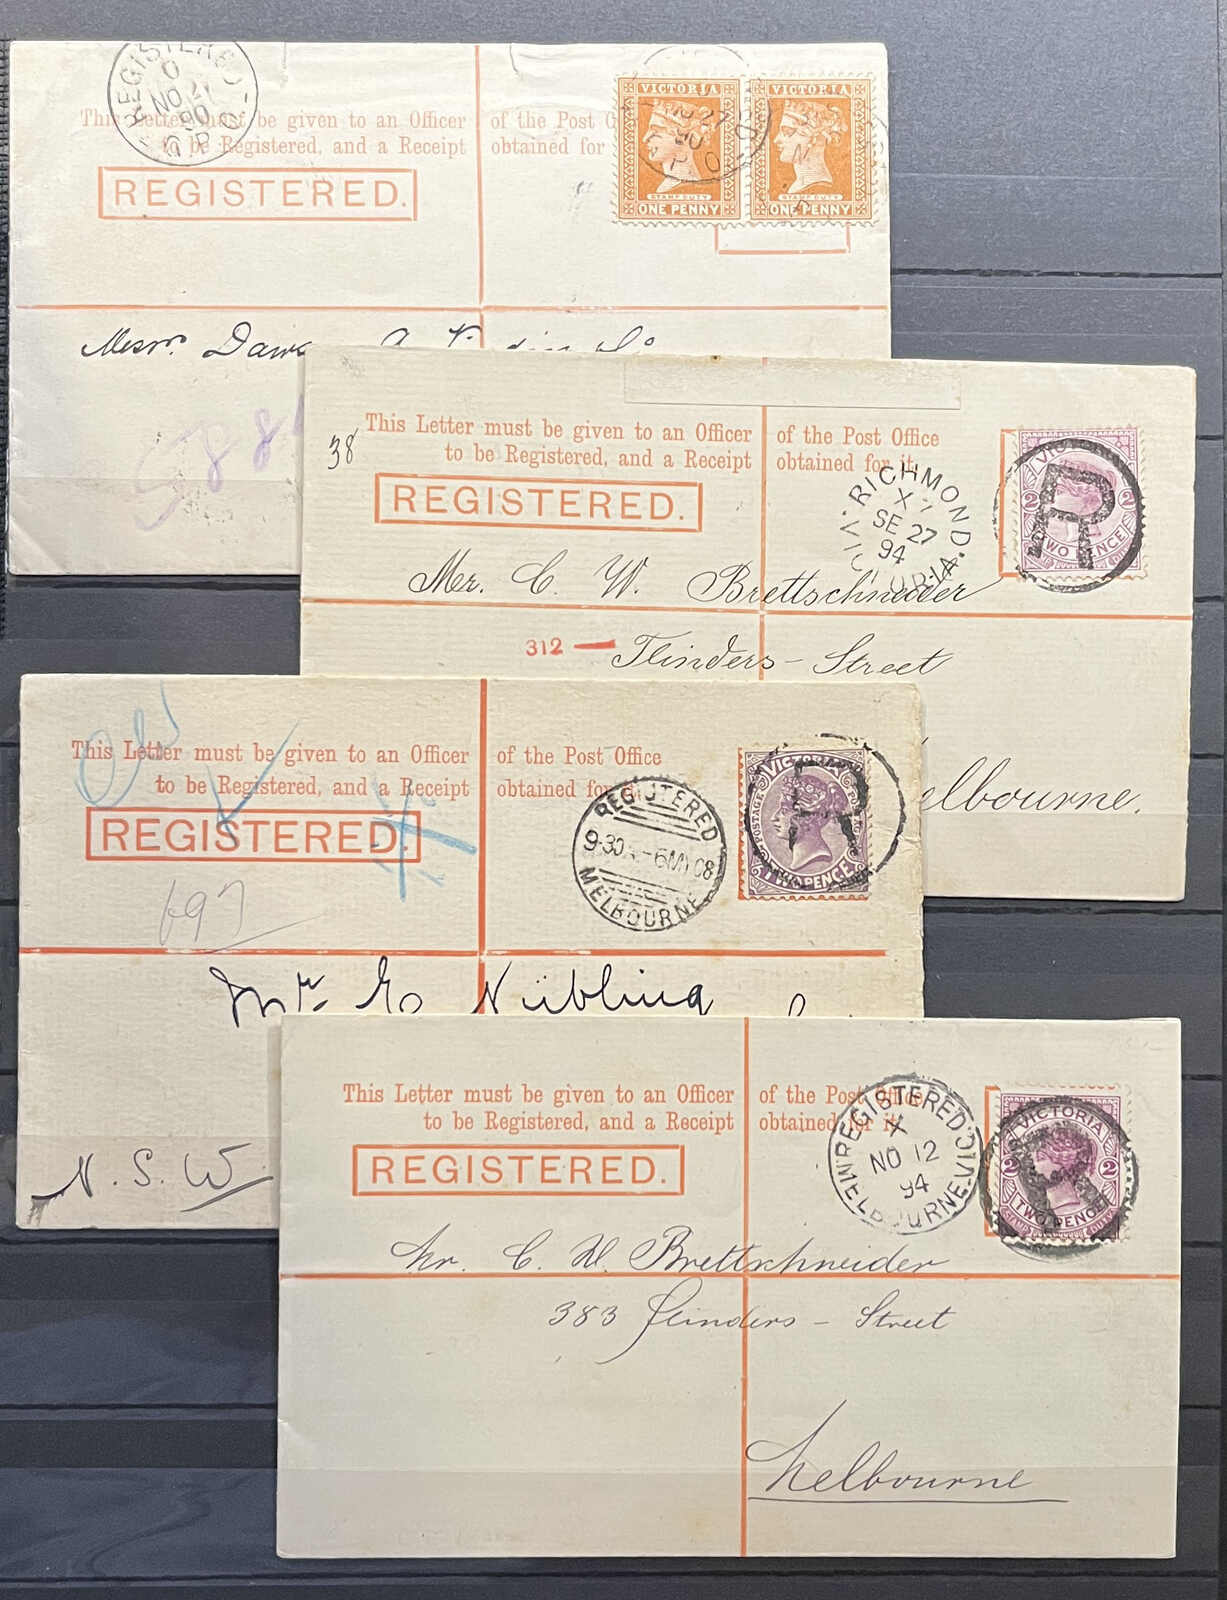 REGISTERED
O
NO 21
90
G.P.O.
This Letter must be given to an Officer of the Post
to be Registered, and a Receipt obtained for
REGISTERED.
VICTORIA
STAMP DUTY
ONE PENNY
VICTORIA
STAMP DUTY
ONE PENNY
27
90
G.P.O.
Messrs.
This Letter must be given to an Officer of the Post Office
to be Registered, and a Receipt obtained for it.
38
REGISTERED.
RICHMOND.
X
SE 27
94
VICTORIA
2 2
TWO PENCE
R
Mr. C. W. Brettschneider
312 Flinders - Street
elbourne.
This Letter must be given to an Officer of the Post Office
to be Registered, and a Receipt obtained for
REGISTERED.
697
REGISTERED
9·30 - 6 MY 08
MELBOURNE
VICTORIA
POSTAGE
TWO PENCE
R
Mr. Nübling
N. S. W
This Letter must be given to an Officer of the Post Office
to be Registered, and a Receipt obtained for it.
REGISTERED.
REGISTERED
X
NO 12
94
MELBOURNE.VIC
VICTORIA
2 2
TWO PENCE
STAMP DUTY
Mr. C. W. Brettschneider
383 Flinders - Street
Melbourne